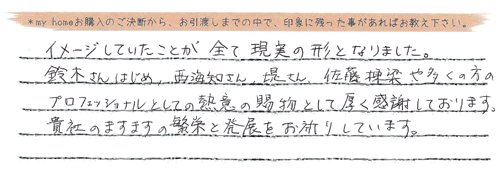 *my homeお購入のご決断から、お引渡しまでの中で、印象に残った事があればお教え下さい。
イメージしていたことが 全て 現実の形となりました。
鈴木さんはじめ、西海知さん、堤さん、佐藤棟梁や多くの方の
プロフェッショナルとしての熱意の賜物として厚く感謝しております。
貴社のますますの繁栄と発展をお祈りしています。